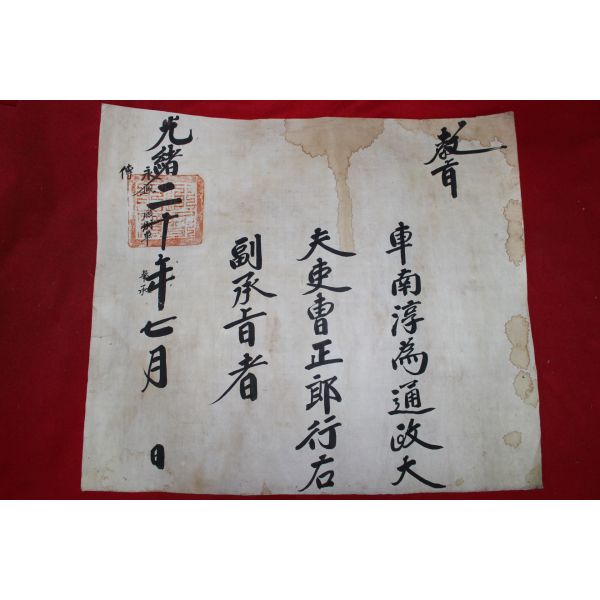 教旨
車南淳為通政大
夫吏曹正郎行右
副承旨者
光緒二十年七月 日